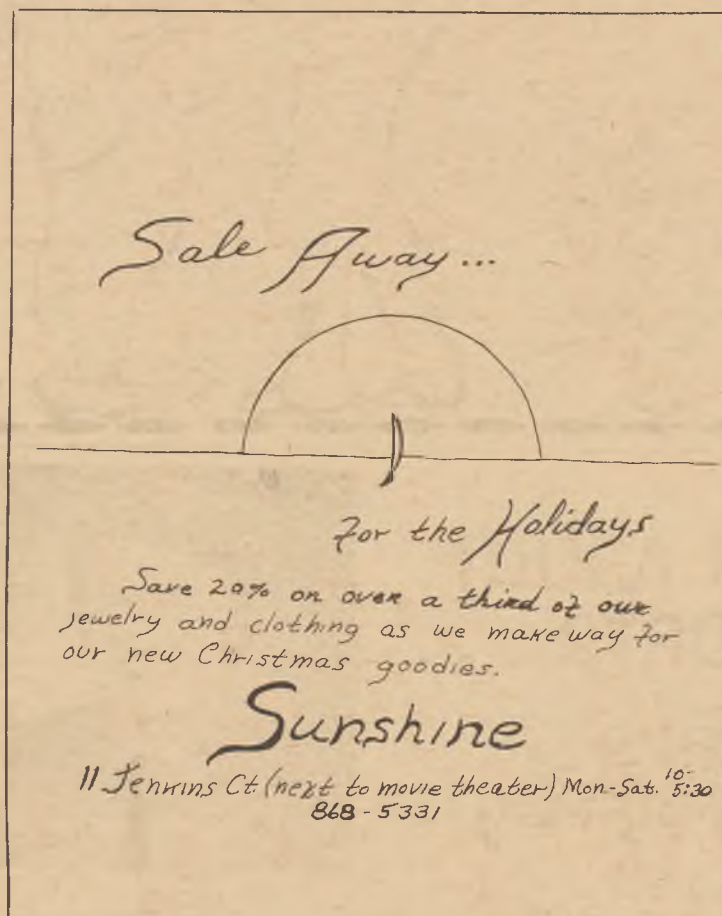 Sale Away...
For the Holidays
Save 20% on over a third of our
jewelry and clothing as we make way for
our new Christmas goodies.
Sunshine
11 Jenkins Ct (next to movie theater) Mon-Sat. 10-5:30
868-5331